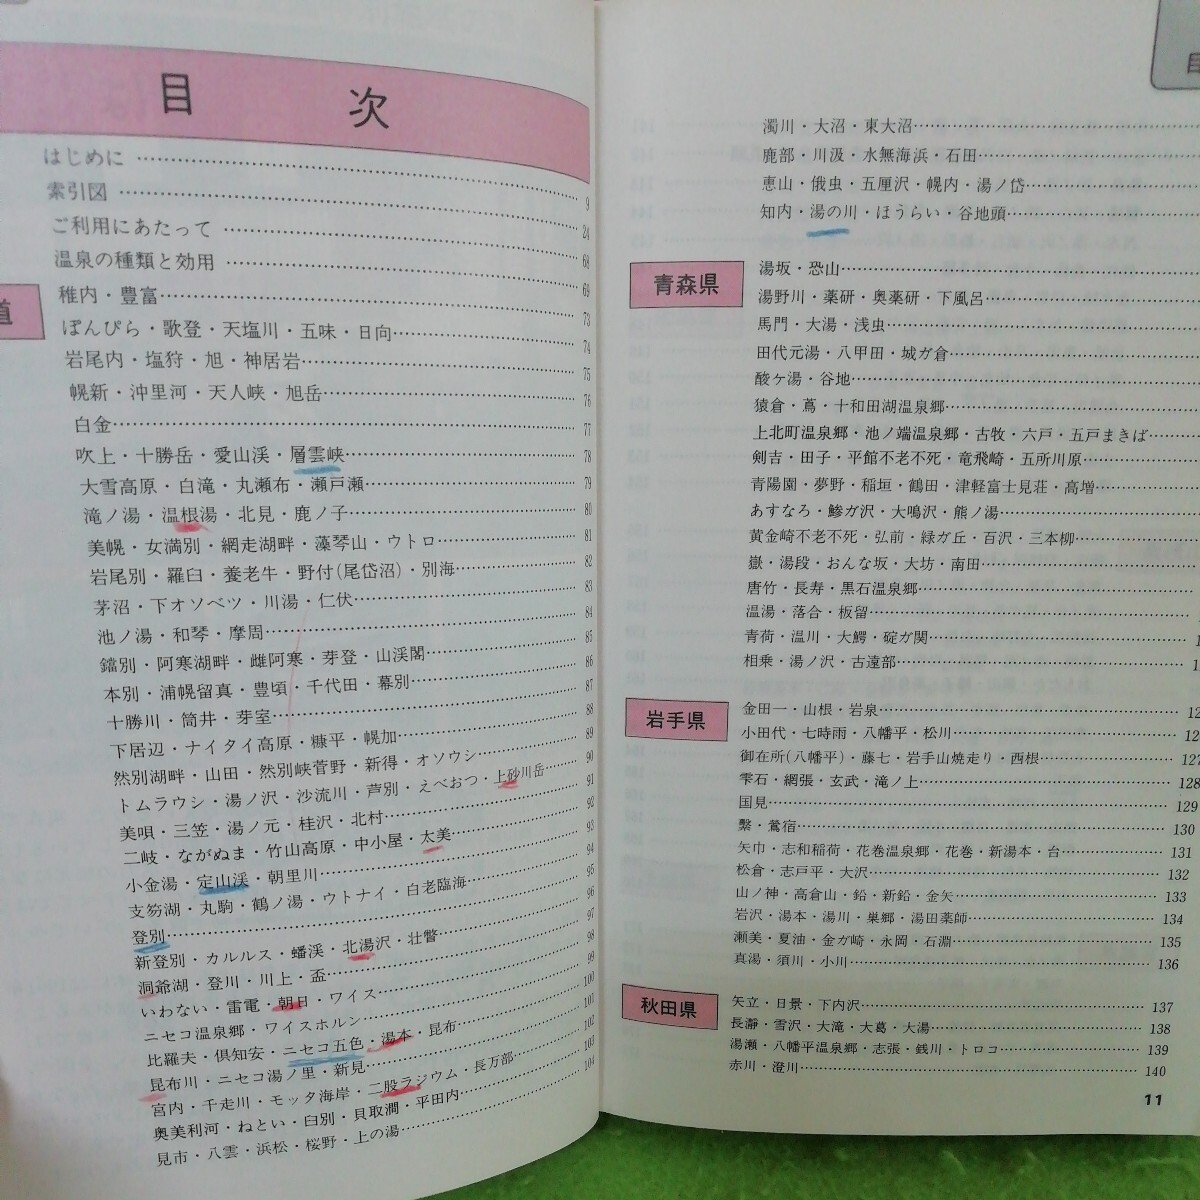 目 次
はじめに 9
索引図 24
ご利用にあたって 68
温泉の種類と効用 69
道
稚内・豊富 73
ぽんぴら・歌登・天塩川・五味・日向 74
岩尾内・塩狩・旭・神居岩 75
幌新・沖里河・天人峡・旭岳 76
白金 77
吹上・十勝岳・愛山渓・層雲峡 78
大雪高原・白滝・丸瀬布・瀬戸瀬 79
滝ノ湯・温根湯・北見・鹿ノ子 80
美幌・女満別・網走湖畔・藻琴山・ウトロ 81
岩尾別・羅臼・養老牛・野付(尾岱沼)・別海 82
茅沼・下オソベツ・川湯・仁伏 83
池ノ湯・和琴・摩周 84
鐺別・阿寒湖畔・雌阿寒・芽登・山渓閣 85
本別・浦幌留真・豊頃・千代田・幕別 86
十勝川・筒井・芽室 87
下居辺・ナイタイ高原・糠平・幌加 88
然別湖畔・山田・然別峡菅野・新得・オソウシ 89
トムラウシ・湯ノ沢・沙流川・芦別・えべおつ・上砂川岳 90
美唄・三笠・湯ノ元・桂沢・北村 91
二岐・ながぬま・竹山高原・中小屋・太美 92
小金湯・定山渓・朝里川 93
支笏湖・丸駒・鶴ノ湯・ウトナイ・白老臨海 94
登別 95
新登別・カルルス・蟠渓・北湯沢・壮瞥 96
洞爺湖・登川・川上・盃 97
いわない・雷電・朝日・ワイス 98
ニセコ温泉郷・ワイスホルン 99
比羅夫・倶知安・ニセコ五色・湯本・昆布 100
昆布川・ニセコ湯ノ里・新見 101
宮内・千走川・モッタ海岸・二股ラジウム・長万部 102
奥美利河・ねとい・臼別・貝取澗・平田内 103
見市・八雲・浜松・桜野・上の湯 104
目
濁川・大沼・東大沼
鹿部・川汲・水無海浜・石田
恵山・俄虫・五厘沢・幌内・湯ノ岱
知内・湯の川・ほうらい・谷地頭
青森県
湯坂・恐山
湯野川・薬研・奥薬研・下風呂
馬門・大湯・浅虫
田代元湯・八甲田・城ガ倉
酸ケ湯・谷地
猿倉・蔦・十和田湖温泉郷
上北町温泉郷・池ノ端温泉郷・古牧・六戸・五戸まきば
剣吉・田子・平館不老不死・竜飛崎・五所川原
青陽園・夢野・稲垣・鶴田・津軽富士見荘・高増
あすなろ・鯵ガ沢・大鳴沢・熊ノ湯
黄金崎不老不死・弘前・緑ガ丘・百沢・三本柳
嶽・湯段・おんな坂・大坊・南田
唐竹・長寿・黒石温泉郷
温湯・落合・板留
青荷・温川・大鰐・碇ガ関
相乗・湯ノ沢・古遠部
岩手県
金田一・山根・岩泉
小田代・七時雨・八幡平・松川
御在所(八幡平)・藤七・岩手山焼走り・西根 127
雫石・網張・玄武・滝ノ上 128
国見 129
繫・鶯宿 130
矢巾・志和稲荷・花巻温泉郷・花巻・新湯本・台 131
松倉・志戸平・大沢 132
山ノ神・高倉山・鉛・新鉛・金矢 133
岩沢・湯本・湯川・巣郷・湯田薬師 134
瀬美・夏油・金ガ崎・永岡・石淵 135
真湯・須川・小川 136
秋田県
矢立・日景・下内沢 137
長瀞・雪沢・大滝・大葛・大湯 138
湯瀬・八幡平温泉郷・志張・銭川・トロコ 139
赤川・澄川 140
11